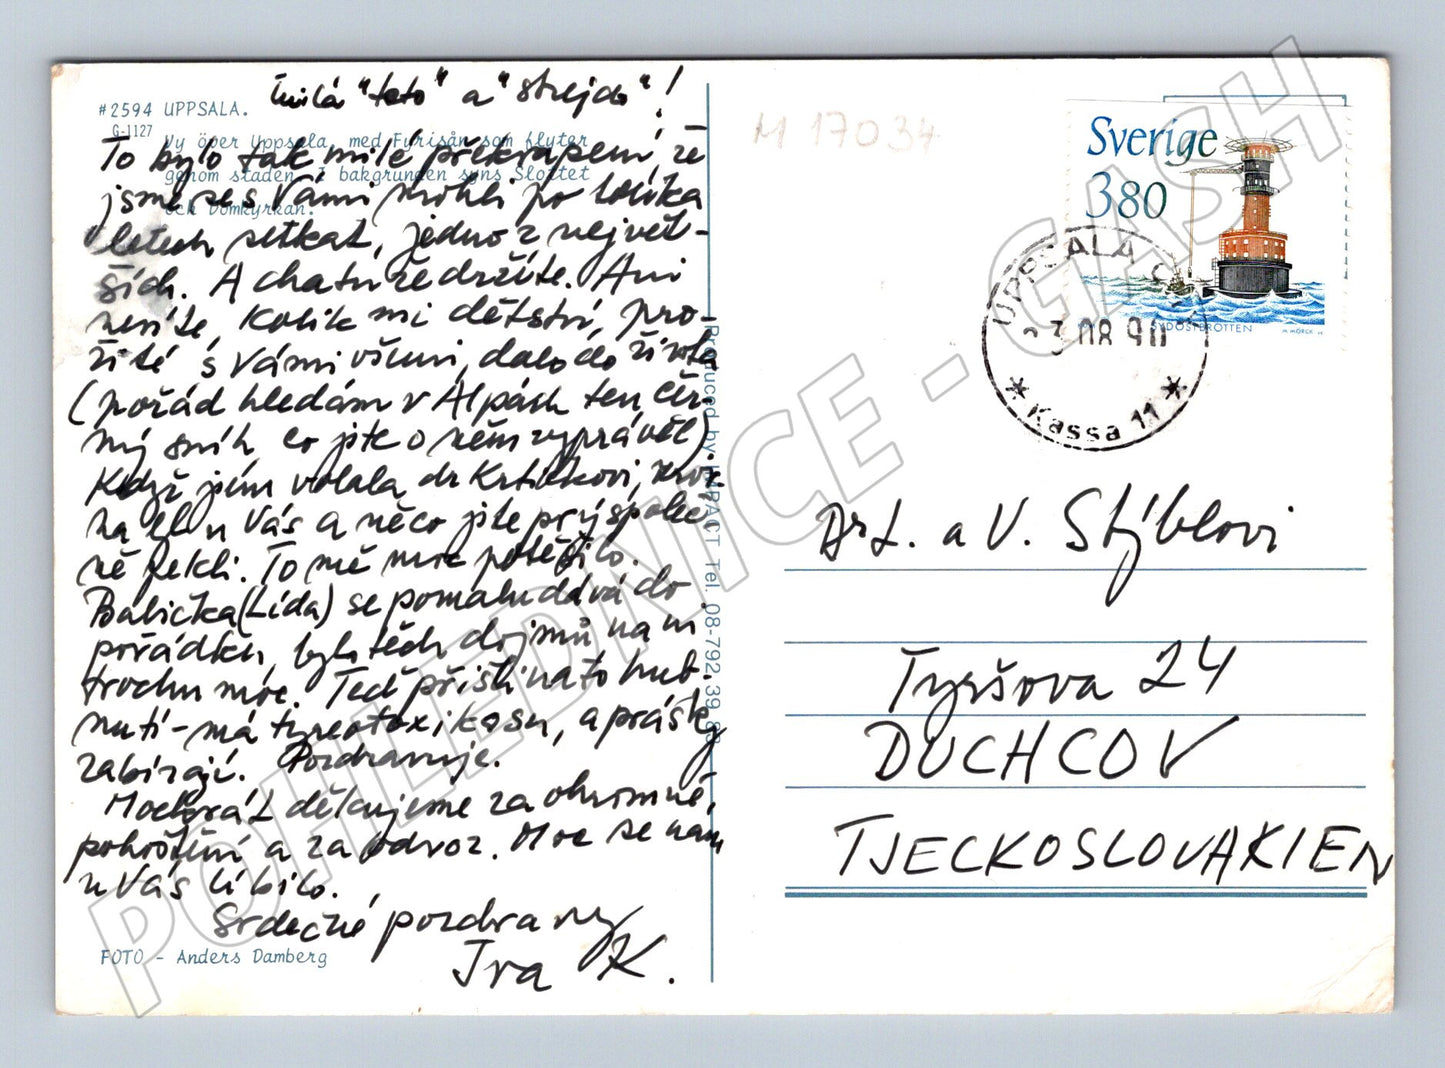 #2594 UPPSALA.
G-1127
Vy över Uppsala, med Fyrisån som flyter
genom staden. I bakgrunden syns Slottet
och Domkyrkan.
Milá "teto" a "strejdo"!
To bylo tak milé překvapení, že
jsme se s Vámi mohli po tolika
letech setkat, jedno z největ-
ších. A chatu že držíte. Ani
nevíte, kolik mi dětství, pro-
žité s Vámi všemi, dalo do života
(pořád hledám v Alpách ten čer-
ný sníh, co jste o něm vyprávěl).
Když jsem volala dr Krtičkovi,
u Vás a něco jste prý společ-
ně řekli. To mě moc potěšilo.
Babička (Lída) se pomalu dává do
pořádku, bylo těch dojmů na ni
trochu moc. Teď přišli na to hub-
nutí - má tyreotoxikosu, a prášky
zabírají. Pozdravuje.
Mockrát děkujeme za ohromné
pohoštění a za odvoz. Moc se nám
u Vás líbilo.
Srdečné pozdravy
Iva K.
FOTO - Anders Damberg
Produced by IMPACT Tel. 08-792 39 8
M 17034
Sverige
3.80
SYDOSTBROTTEN
UPPSALA
3 08 90
* Kassa 11 *
Dr L. a V. Stýblovi
Tyršova 24
DUCHCOV
TJECKOSLOVAKIEN
POHLEDNICE - GASH